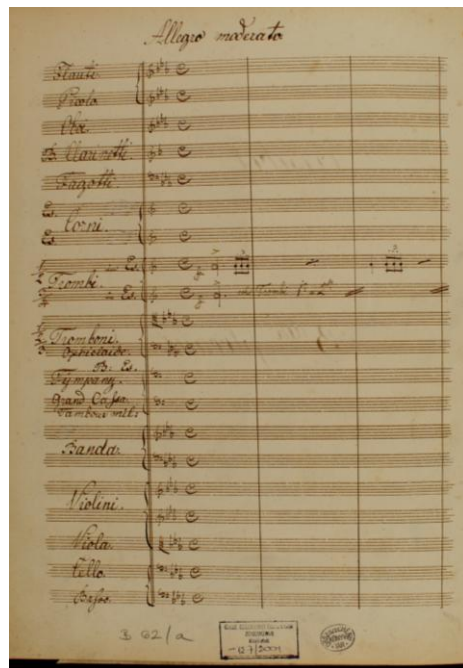 Allegro moderato
Flauti.
Picolo.
Oboi.
B. Clarinetti.
Fagotti.
Es.
Corni.
Es.
in Es.
Trombi
in Es.
Tromboni.
Ophicleide.
B: Es.
Tympany.
Grand Cassa.
Tambour mil:
Banda.
Violini.
Viola.
Cello.
Basso.
B 62/a